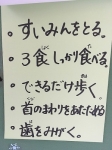 ・すいみんをとる。
・3食しっかり食べる。
・できるだけ歩く
・首のまわりをあたためる
・歯をみがく。